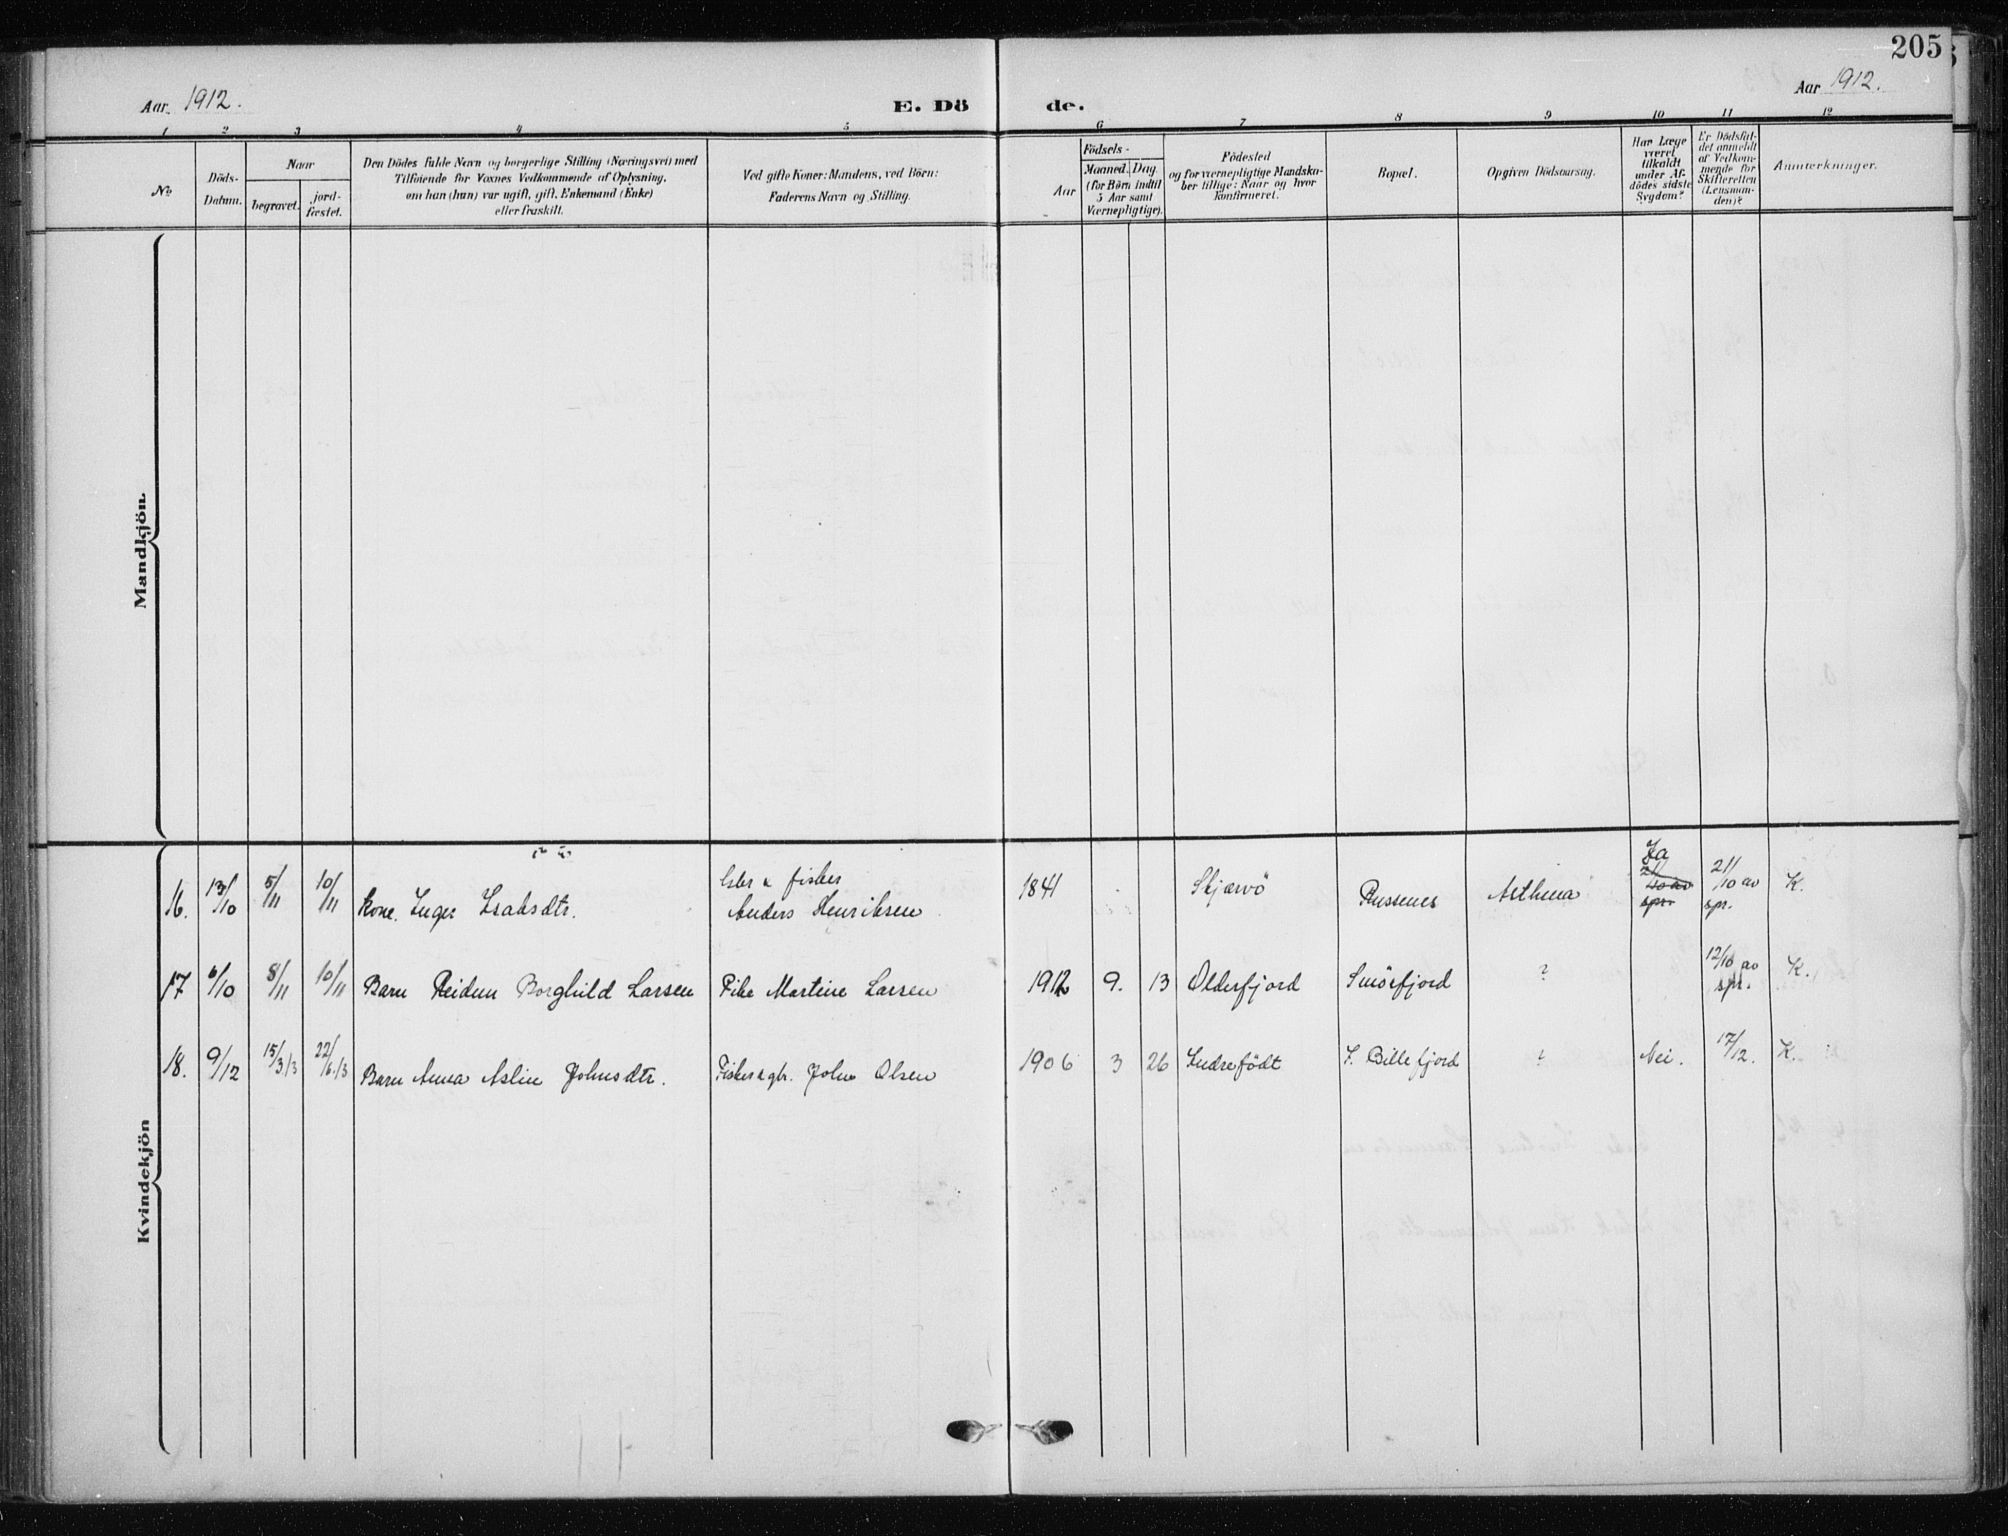 205
Aar 1912. E. Dö de. Aar 1912.
1 2 3 4 5 6 7 8 9 10 11 12
No
Döds-
Datum.
Naar
begravet.
jord-
fæstet.
Den Dödes fulde Navn og borgerlige Stilling (Næringsvei) med
Tilföiende for Voxnes Vedkommende af Oplysning,
om han (hun) var ugift, gift, Enkemand (Enke)
eller fraskilt.
Ved gifte Koner: Mandens, ved Börn:
Faderens Navn og Stilling.
Aar
Födsels-
Maaned. Dag
(for Börn indtil
5 Aar samt
Værnepligtige).
Födested
og for værnepligtige Mandska-
ber tillige: Naar og hvor
konfirmeret.
Bopæl.
Opgiven Dödsaarsag.
Har Læge
været
tilkaldt
under Af-
dödes sidste
Sygdom?
Er Dödsfal-
det anmeldt
af Vedkom-
mende for
Skifteretten
(Lensman-
den)?
Anmærkninger.
Mandkjön.
Kvindekjön
16. 13/10 5/11 10/11 Kone. Inger Isaksdtr. fisker Anders Henriksen 1841 Skjærvö Russenes Asthma Ja 21/10 av spr. 21/10 av spr. K.
17 6/10 8/11 10/11 Barn Reidun Borghild Larsen Pike Martine Larsen 1912 9. 13 Olderfjord Smörfjord ? 12/10 av spr. K.
18. 9/12 15/3 13 22/6 13 Barn Anna Aslin Johnsdtr. Fisker & gbr. John Olsen 1906 3 26 Indrefödt I. Billefjord ? Nei. 17/12. K.